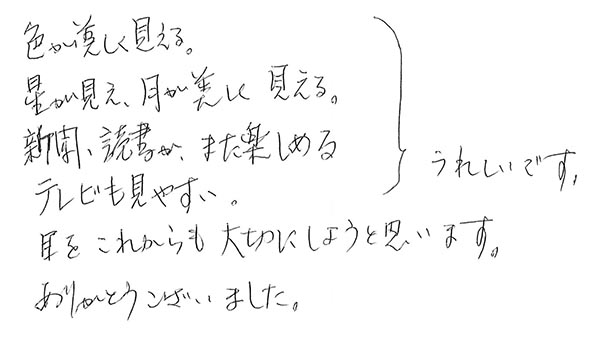 色が美しく見える。
星が見え、月が美しく見える。
新聞、読書が、また楽しめる
テレビも見やすい。
うれしいです。
目をこれからも大切にしようと思います。
ありがとうございました。